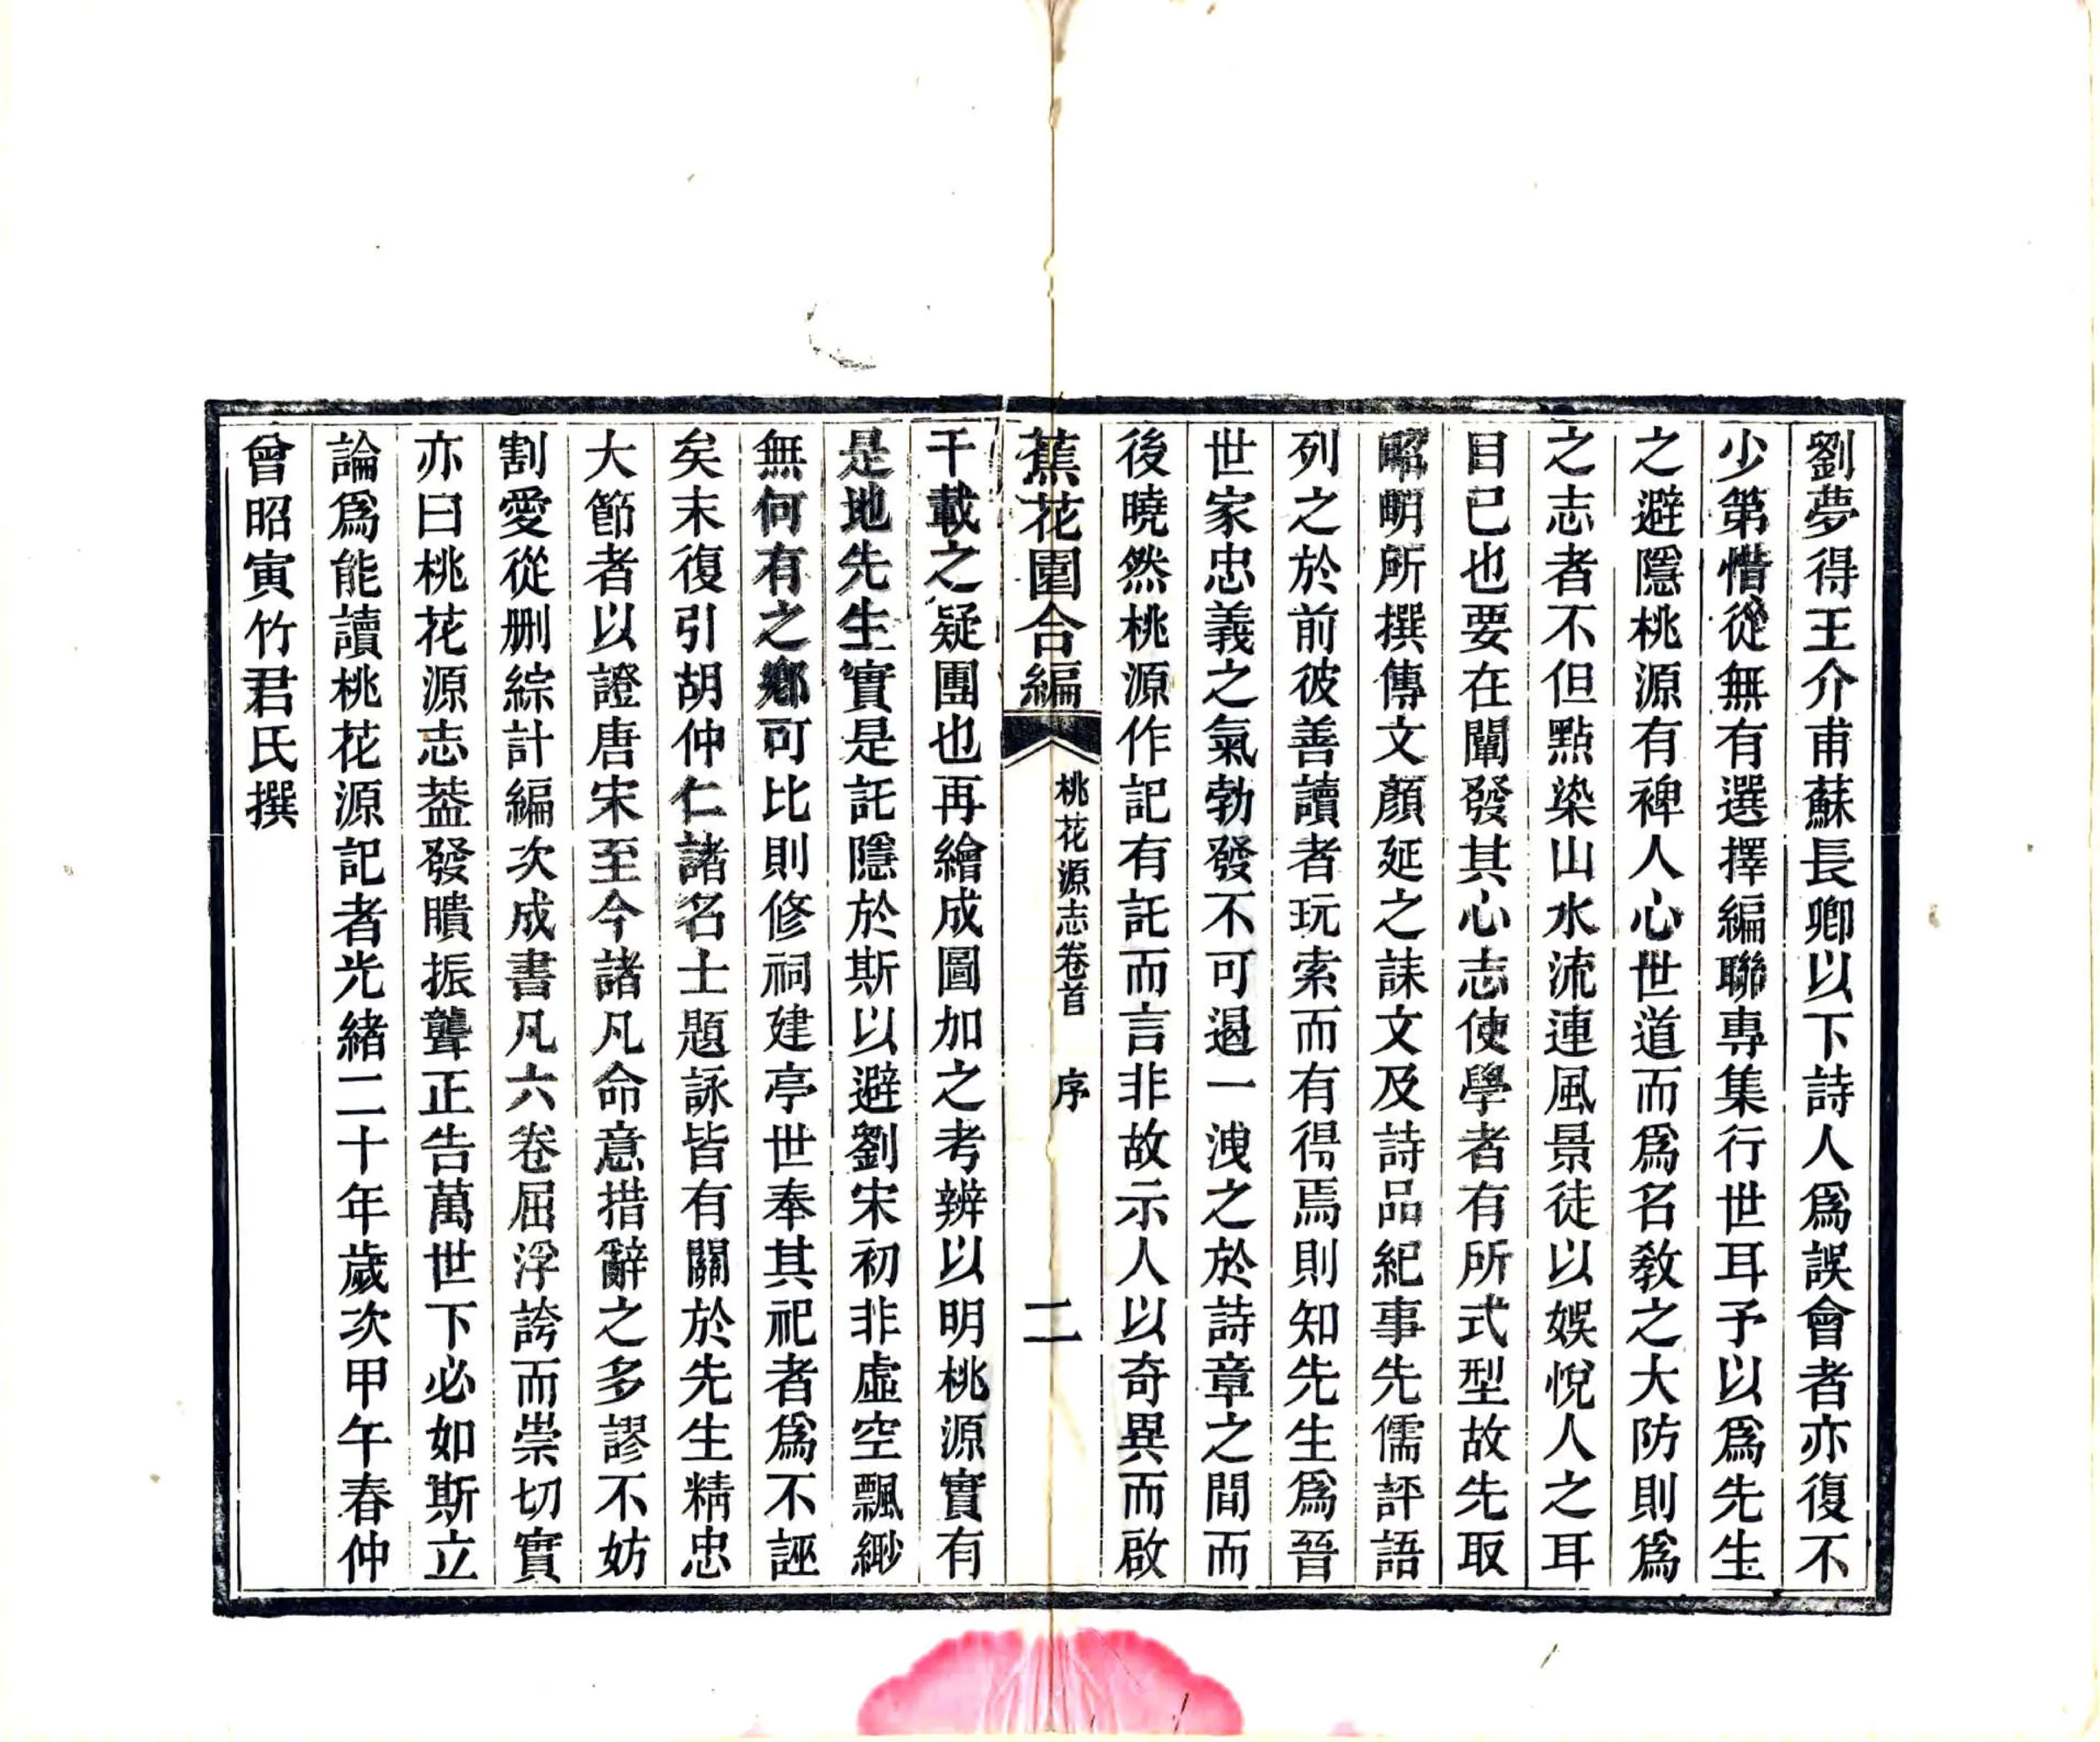 劉夢得王介甫蘇長卿以下詩人爲誤會者亦復不
少第惜從無有選擇編聯專集行世耳予以爲先生
之避隱桃源有裨人心世道而爲名敎之大防則爲
之志者不但點染山水流連風景徒以娛悅人之耳
目已也要在闡發其心志使學者有所式型故先取
昭明所撰傳文顏延之誄文及詩品紀事先儒評語
列之於前彼善讀者玩索而有得焉則知先生爲晉
世家忠義之氣勃發不可遏一洩之於詩章之間而
後曉然桃源作記有託而言非故示人以奇異而啟
蕉花園合編
桃花源志卷首 序
二
千載之疑團也再繪成圖加之考辨以明桃源實有
是地先生實是託隱於斯以避劉宋初非虛空飄緲
無何有之鄉可比則修祠建亭世奉其祀者爲不誣
矣末復引胡仲仁諸名士題詠皆有關於先生精忠
大節者以證唐宋至今諸凡命意措辭之多謬不妨
割愛從删綜計編次成書凡六卷屈浮誇而崇切實
亦曰桃花源志葢發瞶振聾正告萬世下必如斯立
論爲能讀桃花源記者光緒二十年歲次甲午春仲
曾昭寅竹君氏撰